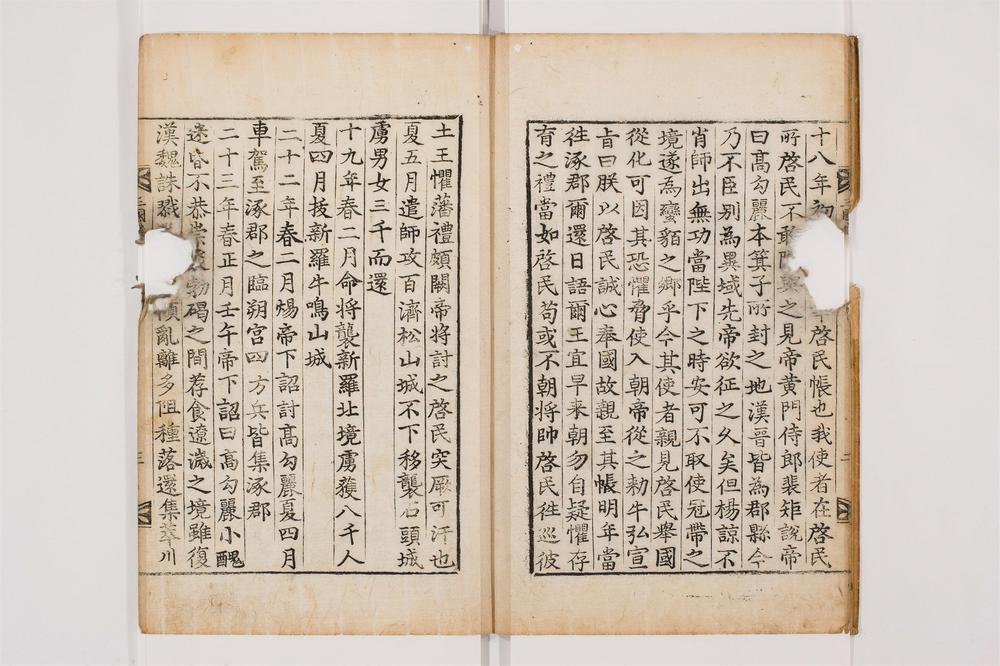 十八年初啓民帳也我使者在啓民
所啓民不敢之見帝黃門侍郎裴矩說帝
曰高勾麗本箕子所封之地漢晉皆為郡縣今
乃不臣别為異域先帝欲征之久矣但楊諒不
肖師出無功當陛下之時安可不取使冠帶之
境遂為蠻貊之鄉乎今其使者親見啓民擧國
從化可因其恐懼脅使入朝帝從之勑牛弘宣
旨曰朕以啓民誠心奉國故親至其帳明年當
徃涿郡爾還日語爾王宜早来朝勿自疑懼存
育之禮當如啓民苟或不朝將帥啓民徃巡彼
土王懼藩禮頗闕帝將討之啓民突厥可汗也
夏五月遣師攻百濟松山城不下移襲石頭城
虜男女三千而還
十九年春二月命將襲新羅北境虜獲八千人
夏四月拔新羅牛鳴山城
二十二年春二月煬帝下詔討高勾麗夏四月
車駕至涿郡之臨朔宮四方兵皆集涿郡
二十三年春正月壬午帝下詔曰高勾麗小醜
迷昏不恭崇勃碣之間荐食遼濊之境雖復
漢魏誅戮傾亂離多阻種落還集萃川